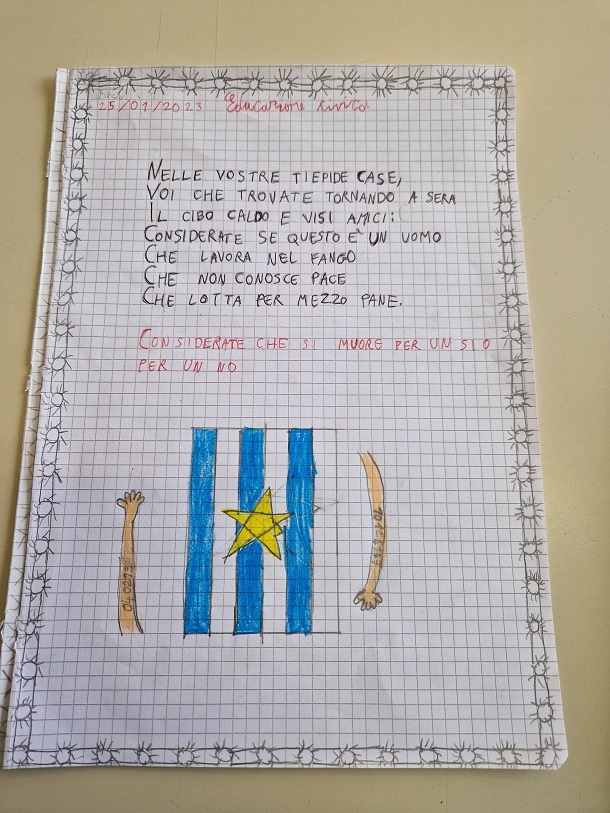 25/01/2023 Educazione civica
NELLE VOSTRE TIEPIDE CASE,
VOI CHE TROVATE TORNANDO A SERA
IL CIBO CALDO E VISI AMICI:
CONSIDERATE SE QUESTO E' UN UOMO
CHE LAVORA NEL FANGO
CHE NON CONOSCE PACE
CHE LOTTA PER MEZZO PANE.
CONSIDERATE CHE SI MUORE PER UN SI O
PER UN NO